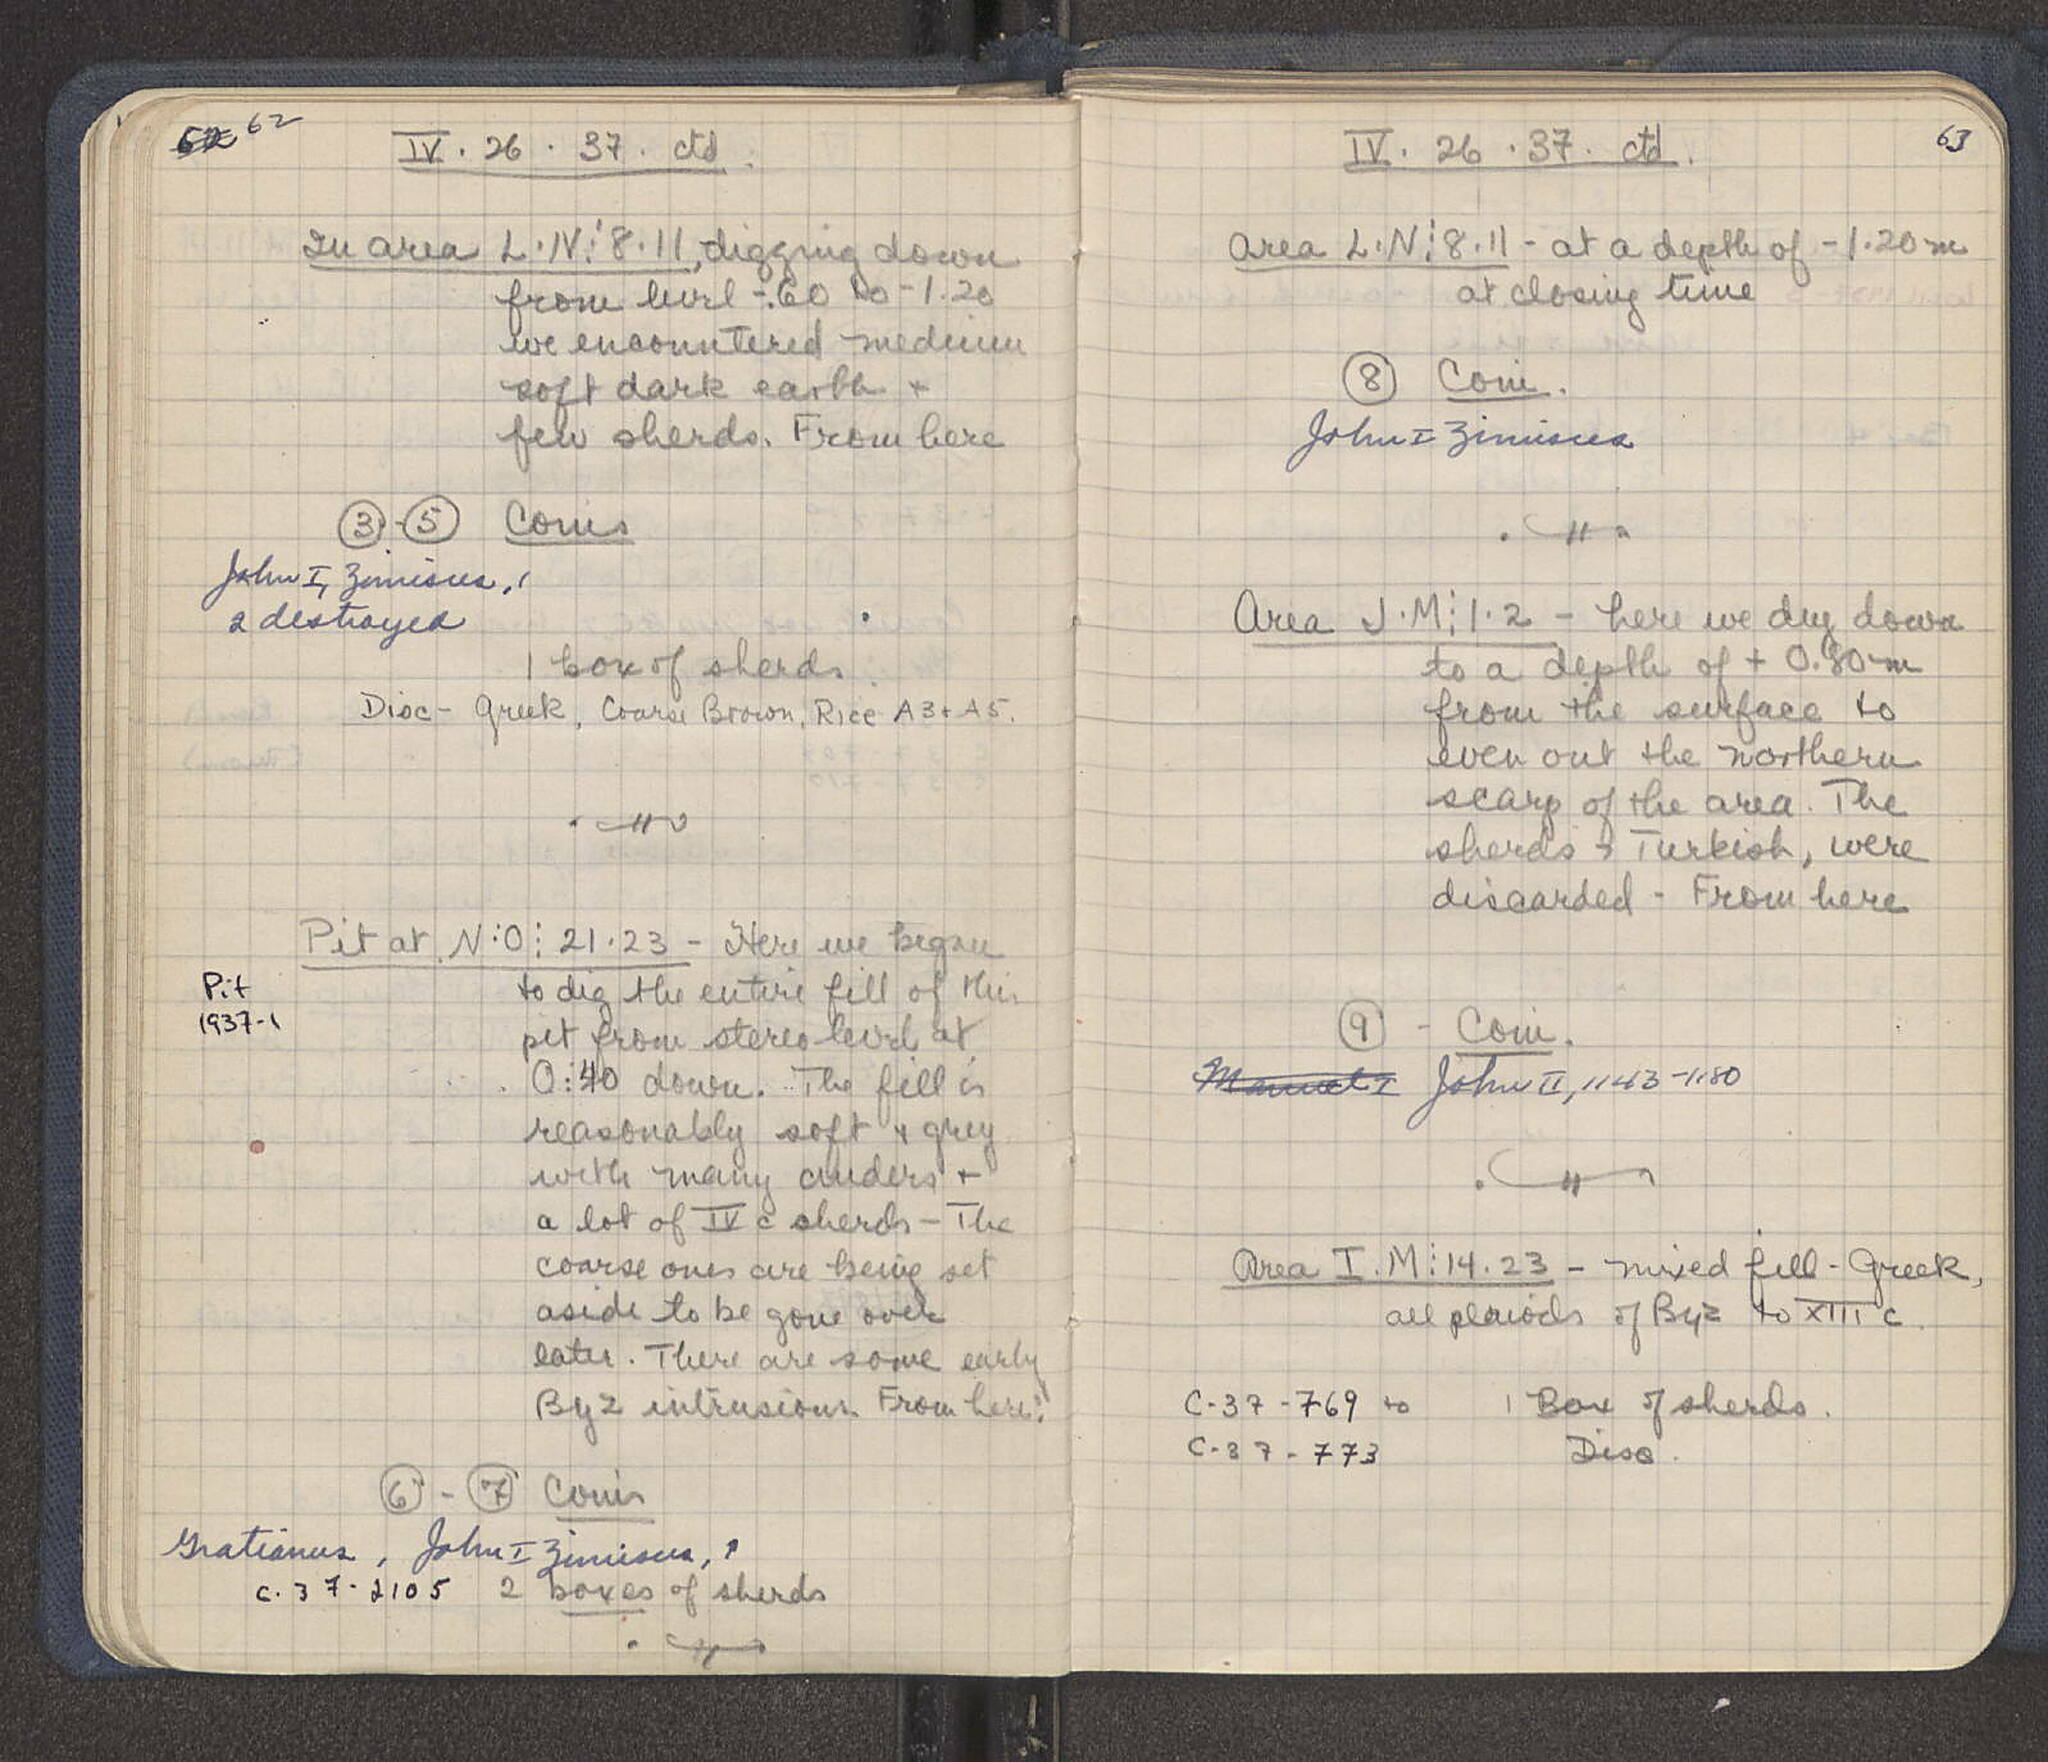 62 62
IV. 26. 37. ctd.
In area L.N:8.11, digging down
from level -.60 to -1.20
we encountered medium
soft dark earth +
few sherds. From here
3-5 Coins
John I, Zimisces, 1
2 destroyed
1 box of sherds.
Disc- Greek, Coarse Brown, Rice A3+A5.
Pit at N:O:21.23 - Here we began
Pit
1937-1
to dig the entire fill of this
pit from stereo level at
0:40 down. The fill is
reasonably soft + grey
with many cinders +
a lot of IV c sherds - The
coarse ones are being set
aside to be gone over
later. There are some early
Byz intrusions. From here:
6-7 Coins
Gratianus, John I Zimisces, 1
C.37-2105 2 boxes of sherds
63
IV. 26. 37. ctd.
Area L.N:8.11 - at a depth of -1.20 m
at closing time
8 Coin.
John I Zimisces
Area J.M:1.2 - here we dug down
to a depth of + 0.80 m
from the surface to
even out the northern
scarp of the area. The
sherds, Turkish, were
discarded - From here
9 - Coin.
Manuel I John II, 1143-1180
Area I.M:14.23 - mixed fill - Greek,
all periods of Byz to XIII c.
C-37-769 to 1 Box of sherds.
C-37-773 Disc.